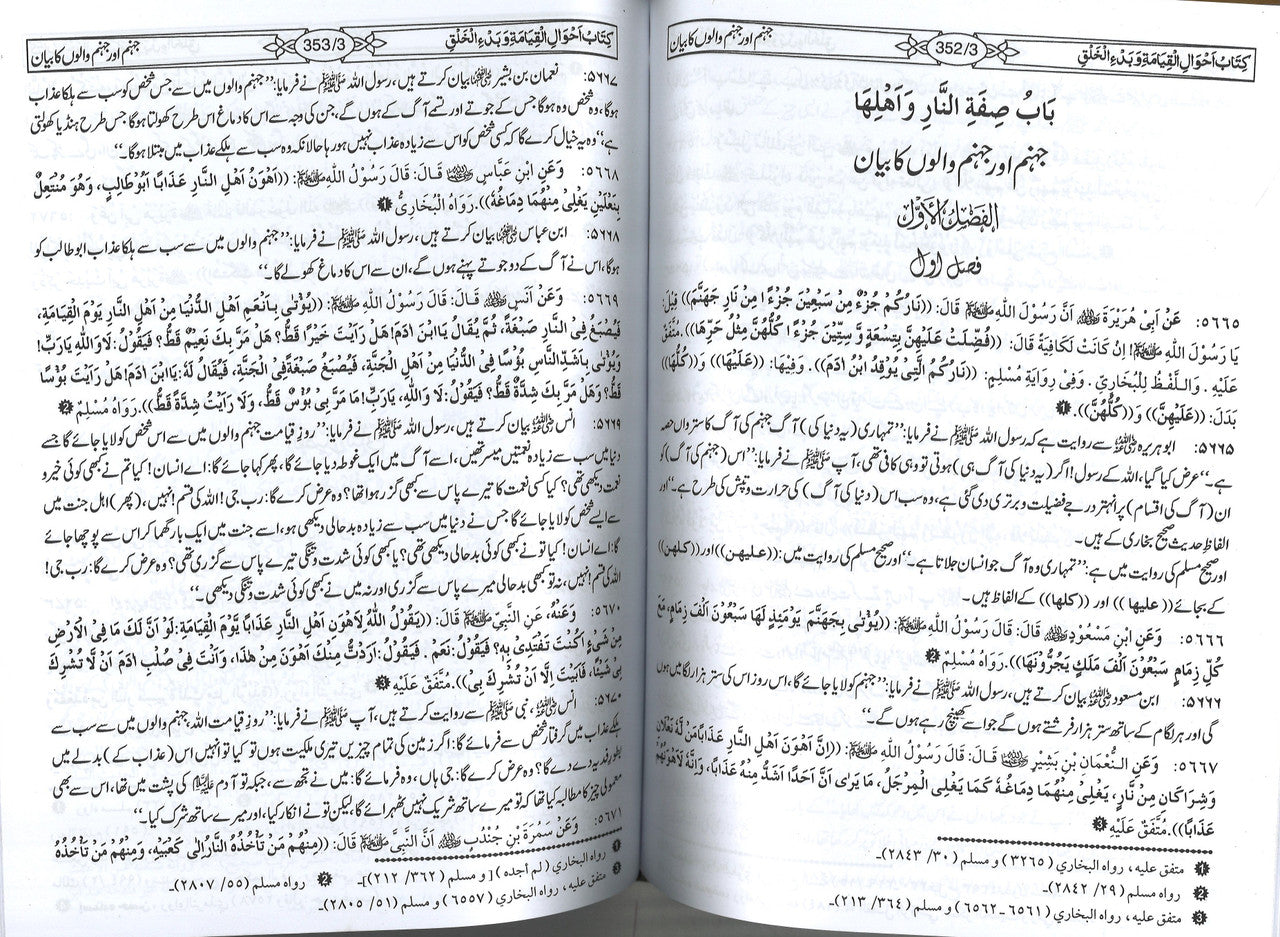 كِتَابُ اَحْوَالِ الْقِيَامَةِ وَبَدْءِ الْخَلْقِ 352/3 جہنم اور جہنم والوں کا بیان
بَابُ صِفَةِ النَّارِ وَاَهْلِهَا
جہنم اور جہنم والوں کا بیان
الفَصْلُ الْاَوَّلُ
فصل اول
٥٦٦٥: عَنْ اَبِیْ هُرَيْرَةَ ؓ اَنَّ رَسُوْلَ اللهِ ﷺ قَالَ: ((نَارُكُمْ جُزْءٌ مِنْ سَبْعِيْنَ جُزْءًا مِنْ نَارِ جَهَنَّمَ)) قِيْلَ:
يَا رَسُوْلَ اللهِ ﷺ! اِنْ كَانَتْ لَكَافِيَةً قَالَ: ((فُضِّلَتْ عَلَيْهِنَّ بِتِسْعَةٍ وَّ سِتِّيْنَ جُزْءًا كُلُّهُنَّ مِثْلُ حَرِّهَا)). مُتَّفَقٌ
عَلَيْهِ. وَاللَّفْظُ لِلْبُخَارِيِّ. وَفِیْ رِوَايَةِ مُسْلِمٍ: ((نَارُكُمُ الَّتِیْ يُوْقِدُ ابْنُ اٰدَمَ)). وَفِيْهَا: ((عَلَيْهَا)) وَ((كُلُّهَا))
بَدَلَ: ((عَلَيْهِنَّ)) وَ((كُلُّهُنَّ)). ❶
٥٦٦٥: ابو ہریرہ ؓ سے روایت ہے کہ رسول اللہ ﷺ نے فرمایا: ’’تمہاری (یہ دنیا کی) آگ جہنم کی آگ کا ستر واں حصہ
ہے۔‘‘ عرض کیا گیا، اللہ کے رسول! اگر (یہ دنیا کی آگ ہی) ہوتی تو وہی کافی تھی، آپ ﷺ نے فرمایا: ’’اس (جہنم کی آگ) کو
ان (آگ کی اقسام) پر انہتر درجے فضیلت و برتری دی گئی ہے، وہ سب اس (دنیا کی آگ) کی حرارت و تپش کی طرح ہے۔‘‘ اور
الفاظ حدیث صحیح بخاری کے ہیں۔
اور صحیح مسلم کی روایت میں ہے: ’’تمہاری وہ آگ جو انسان جلاتا ہے۔‘‘ اور صحیح مسلم کی روایت میں: ((علیهن)) اور ((کلهن))
کے بجائے ((علیها)) اور ((کلها)) کے الفاظ ہیں۔
٥٦٦٦: وَعَنِ ابْنِ مَسْعُوْدٍ ؓ قَالَ: قَالَ رَسُوْلُ اللهِ ﷺ: ((يُؤْتٰى بِجَهَنَّمَ يَوْمَئِذٍ لَهَا سَبْعُوْنَ اَلْفَ زِمَامٍ، مَعَ
كُلِّ زِمَامٍ سَبْعُوْنَ اَلْفَ مَلَكٍ يَجُرُّوْنَهَا)). رَوَاهُ مُسْلِمٌ ❷
٥٦٦٦: ابن مسعود ؓ بیان کرتے ہیں، رسول اللہ ﷺ نے فرمایا: ’’جہنم کو لایا جائے گا، اس روز اس کی ستر ہزار لگامیں ہوں
گی اور ہر لگام کے ساتھ ستر ہزار فرشتے ہوں گے جو اسے کھینچ رہے ہوں گے۔‘‘
٥٦٦٧: وَعَنِ النُّعْمَانِ بْنِ بَشِيْرٍ ؓ قَالَ: قَالَ رَسُوْلُ اللهِ ﷺ: ((اِنَّ اَهْوَنَ اَهْلِ النَّارِ عَذَابًا مَنْ لَهُ نَعْلَانِ
وَشِرَاكَانِ مِنْ نَّارٍ، يَغْلِیْ مِنْهُمَا دِمَاغُهٗ كَمَا يَغْلِی الْمِرْجَلُ، مَا يَرٰى اَنَّ اَحَدًا اَشَدُّ مِنْهُ عَذَابًا، وَاِنَّهٗ لَاَهْوَنُهُمْ
عَذَابًا)). مُتَّفَقٌ عَلَيْهِ ❸
❶ متفق عليه، رواه البخاري (٣٢٦٥) و مسلم (٣٠/ ٢٨٤٣)۔
❷ رواه مسلم (٢٩/ ٢٨٤٢)۔
❸ متفق عليه، رواه البخاري (٦٥٦١-٦٥٦٢) و مسلم (٣٦٤/ ٢١٣)۔
كِتَابُ اَحْوَالِ الْقِيَامَةِ وَبَدْءِ الْخَلْقِ 353/3 جہنم اور جہنم والوں کا بیان
٥٦٦٧: نعمان بن بشیر ؓ بیان کرتے ہیں، رسول اللہ ﷺ نے فرمایا: ’’جہنم والوں میں سے جس شخص کو سب سے ہلکا عذاب
ہوگا، وہ شخص وہ ہوگا جس کے جوتے اور تسمے آگ کے ہوں گے، جن کی وجہ سے اس کا دماغ اس طرح کھولتا ہوگا جس طرح ہنڈیا کھولتی
ہے، ‘‘وہ یہ خیال کرے گا کہ کسی شخص کو اس سے زیادہ عذاب نہیں ہو رہا حالانکہ وہ سب سے ہلکے عذاب میں مبتلا ہوگا۔‘‘
٥٦٦٨: وَعَنِ ابْنِ عَبَّاسٍ ؓ قَالَ: قَالَ رَسُوْلُ اللهِ ﷺ: ((اَهْوَنُ اَهْلِ النَّارِ عَذَابًا اَبُوْ طَالِبٍ، وَهُوَ مُنْتَعِلٌ
بِنَعْلَيْنِ يَغْلِیْ مِنْهُمَا دِمَاغُهٗ)). رَوَاهُ الْبُخَارِيُّ ❶
٥٦٦٨: ابن عباس ؓ بیان کرتے ہیں، رسول اللہ ﷺ نے فرمایا: ’’جہنم والوں میں سے سب سے ہلکا عذاب ابو طالب کو
ہوگا، اس نے آگ کے دو جوتے پہنے ہوں گے، ان سے اس کا دماغ کھولے گا۔‘‘
٥٦٦٩: وَعَنْ اَنَسٍ ؓ قَالَ: قَالَ رَسُوْلُ اللهِ ﷺ: ((يُؤْتٰى بِاَنْعَمِ اَهْلِ الدُّنْيَا مِنْ اَهْلِ النَّارِ يَوْمَ الْقِيَامَةِ،
فَيُصْبَغُ فِی النَّارِ صَبْغَةً، ثُمَّ يُقَالُ يَا ابْنَ اٰدَمَ! هَلْ رَاَيْتَ خَيْرًا قَطُّ؟ هَلْ مَرَّ بِكَ نَعِيْمٌ قَطُّ؟ فَيَقُوْلُ: لَا وَاللهِ يَا رَبِّ!
وَيُؤْتٰى بِاَشَدِّ النَّاسِ بُؤْسًا فِی الدُّنْيَا مِنْ اَهْلِ الْجَنَّةِ، فَيُصْبَغُ صَبْغَةً فِی الْجَنَّةِ، فَيُقَالُ لَهُ: يَا ابْنَ اٰدَمَ! هَلْ رَاَيْتَ بُؤْسًا
قَطُّ؟ وَهَلْ مَرَّ بِكَ شِدَّةٌ قَطُّ؟ فَيَقُوْلُ: لَا وَاللهِ، يَارَبِّ! مَا مَرَّ بِیْ بُؤْسٌ قَطُّ، وَلَا رَاَيْتُ شِدَّةً قَطُّ)). رَوَاهُ مُسْلِمٌ ❷
٥٦٦٩: انس ؓ بیان کرتے ہیں، رسول اللہ ﷺ نے فرمایا: ’’روزِ قیامت جہنم والوں میں سے اس شخص کو لایا جائے گا جسے
دنیا میں سب سے زیادہ نعمتیں میسر تھیں، اسے آگ میں ایک غوطہ دیا جائے گا، پھر کہا جائے گا: اے انسان! کیا تم نے کبھی کوئی خیر و
نعمت دیکھی تھی؟ کیا کسی نعمت کا تیرے پاس سے کبھی گزر ہوا تھا؟ وہ عرض کرے گا: رب جی! اللہ کی قسم! نہیں، (پھر) اہل جنت میں
سے ایسے شخص کو لایا جائے گا جس نے دنیا میں سب سے زیادہ بدحالی دیکھی ہو، اسے جنت میں ایک بار گھما کر اس سے پوچھا جائے
گا: اے انسان! کیا تو نے کبھی کوئی بدحالی دیکھی تھی؟ یا کبھی کوئی شدت و تنگی تیرے پاس سے گزری تھی؟ وہ عرض کرے گا: رب جی!
اللہ کی قسم! نہیں، نہ تو کبھی بدحالی میرے پاس سے گزری اور نہ میں نے کبھی کوئی شدت و تنگی دیکھی۔‘‘
٥٦٧٠: وَعَنْهُ، عَنِ النَّبِيِّ ﷺ قَالَ: ((يَقُوْلُ اللهُ لِاَهْوَنِ اَهْلِ النَّارِ عَذَابًا يَّوْمَ الْقِيَامَةِ: لَوْ اَنَّ لَكَ مَا فِی الْاَرْضِ
مِنْ شَیْءٍ اَكُنْتَ تَفْتَدِیْ بِهٖ؟ فَيَقُوْلُ: نَعَمْ. فَيَقُوْلُ: اَرَدْتُّ مِنْكَ اَهْوَنَ مِنْ هٰذَا، وَاَنْتَ فِیْ صُلْبِ اٰدَمَ اَنْ لَّا تُشْرِكَ
بِیْ شَيْئًا، فَاَبَيْتَ اِلَّا اَنْ تُشْرِكَ بِیْ)). مُتَّفَقٌ عَلَيْهِ ❸
٥٦٧٠: انس ؓ، نبی ﷺ سے روایت کرتے ہیں، آپ ﷺ نے فرمایا: ’’روزِ قیامت اللہ، جہنم والوں میں سے سب سے
ہلکے عذاب میں گرفتار شخص سے فرمائے گا: اگر زمین کی تمام چیزیں تیری ملکیت ہوں تو کیا تو انہیں اس (عذاب کے) بدلے میں
بطور فدیہ دے دے گا؟ وہ عرض کرے گا: جی ہاں، وہ فرمائے گا: میں نے تجھ سے، جبکہ تو آدم ؑ کی پشت میں تھا، اس سے بھی
معمولی چیز کا مطالبہ کیا تھا کہ تو میرے ساتھ شریک نہیں ٹھہرائے گا، لیکن تو نے انکار کیا، اور میرے ساتھ شرک کیا۔‘‘
٥٦٧١: وَعَنْ سَمُرَةَ بْنِ جُنْدُبٍ ؓ اَنَّ النَّبِیَّ ﷺ قَالَ: ((مِنْهُمْ مَنْ تَاْخُذُهُ النَّارُ اِلٰى كَعْبَيْهِ، وَمِنْهُمْ مَنْ تَاْخُذُهُ
❶ رواه البخاري (لم أجده) و مسلم (٣٦٢/ ٢١٢)۔ ❷ رواه مسلم (٥٥/ ٢٨٠٧)۔
❸ متفق عليه، رواه البخاري (٦٥٥٧) و مسلم (٥١/ ٢٨٠٥)۔